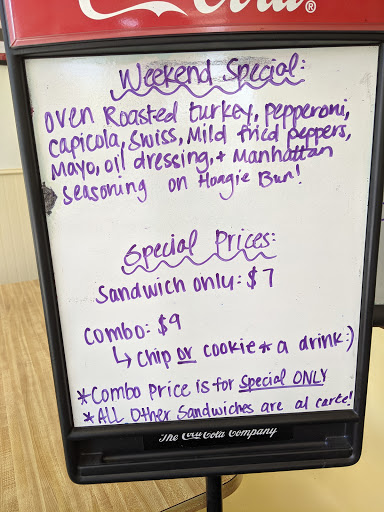 Coca-Cola®
Weekend Special:
oven Roasted turkey, pepperoni,
capicola, Swiss, Mild fried peppers,
Mayo, oil dressing, + Manhattan
seasoning on Hoagie Bun!
Special Prices:
Sandwich only: $7
combo: $9
↳ chip or cookie * a drink :)
*Combo Price is for Special ONLY
*ALL Other Sandwiches are al carte!
The Coca-Cola Company